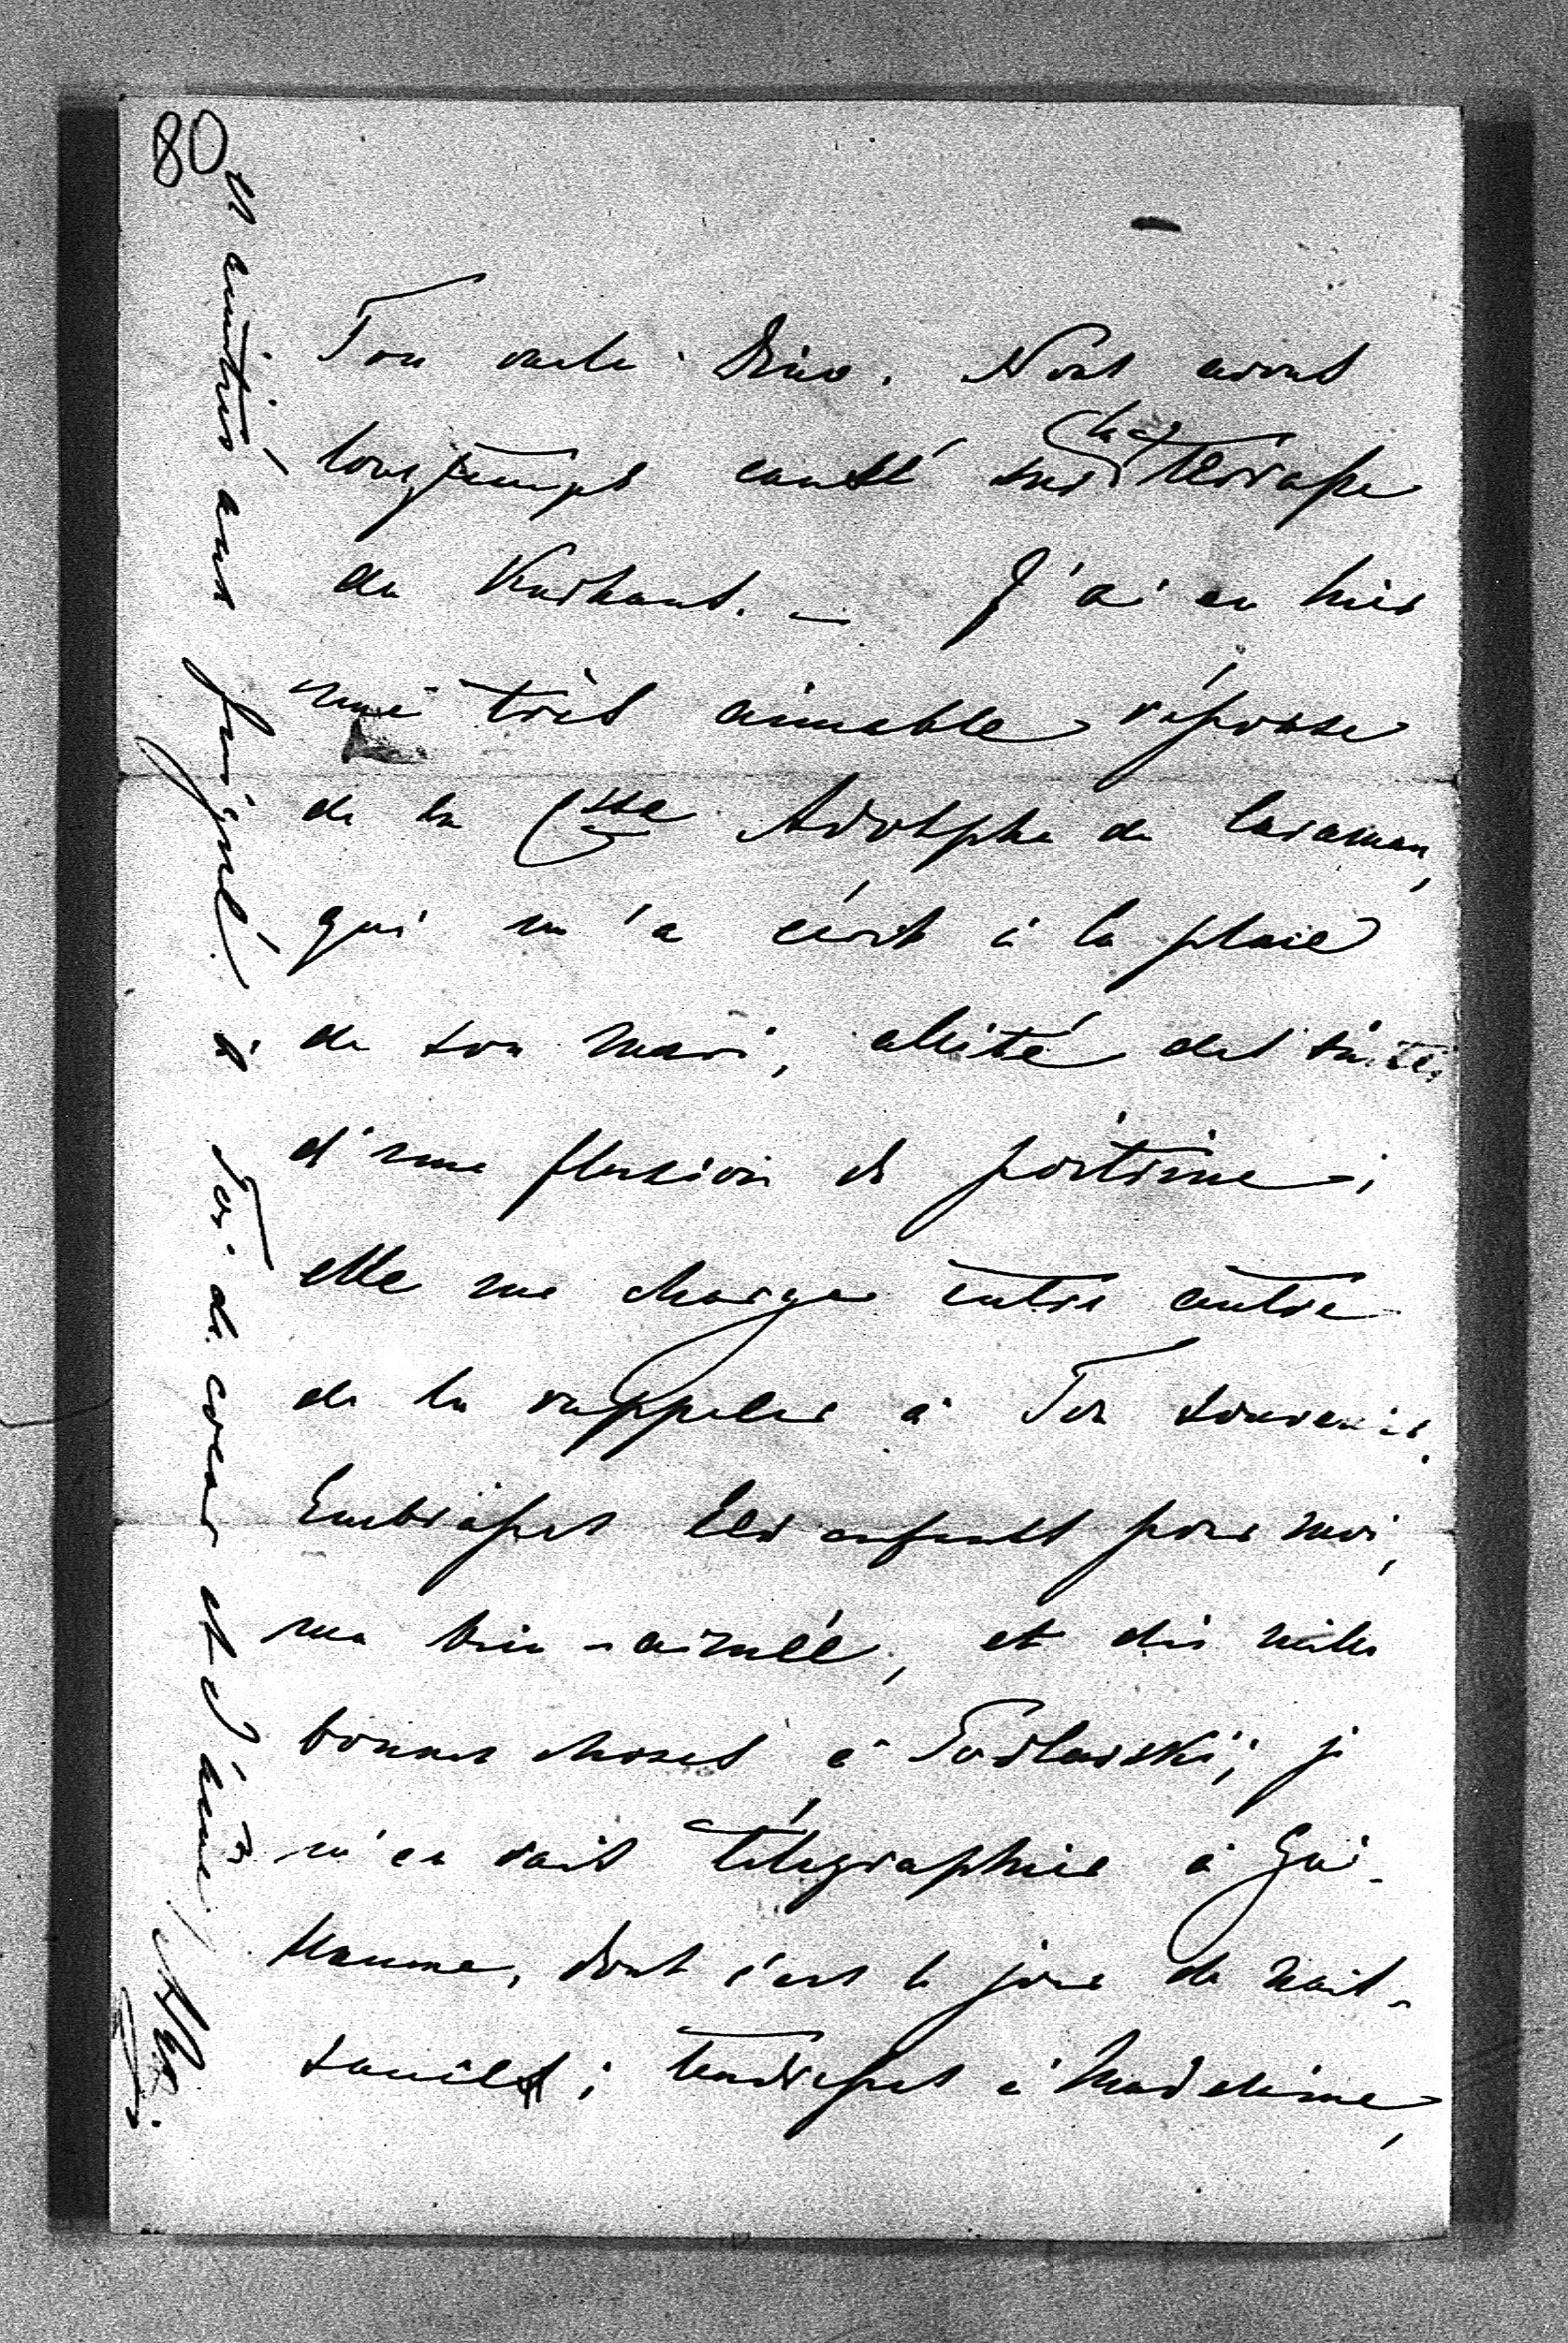 80
Ton oncle Dino. Nous avons
longtemps causé sur (la) terrasse
du Kurhaus. — J'ai eu hier
une très aimable réponse
de la Csse Adolphe de Caraman,
qui m'a écrit à la place
de son mari, alité des suites
d'une fluxion de poitrine ;
elle me charge entre autre
de la rappeler à Ton souvenir.
Embrasses les enfants pour moi,
ma bien-aimée, et dis mille
bonnes choses à ; je
m'en vais télégraphier à Gui-
llaume, dont c'est le jour de nais-
sance ; tendresses à Madeleine,
et amitiés aux . à Toi de coeur et d'âme